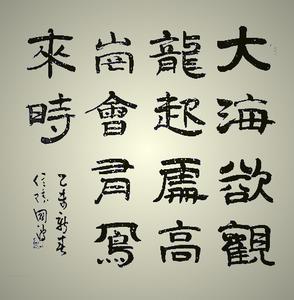 大海欲觀
龍起處高
崗會有鳳
來時
乙未新春